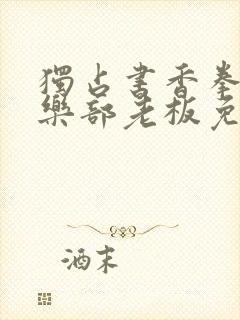 獨占書香拳
樂部老板免
酒末